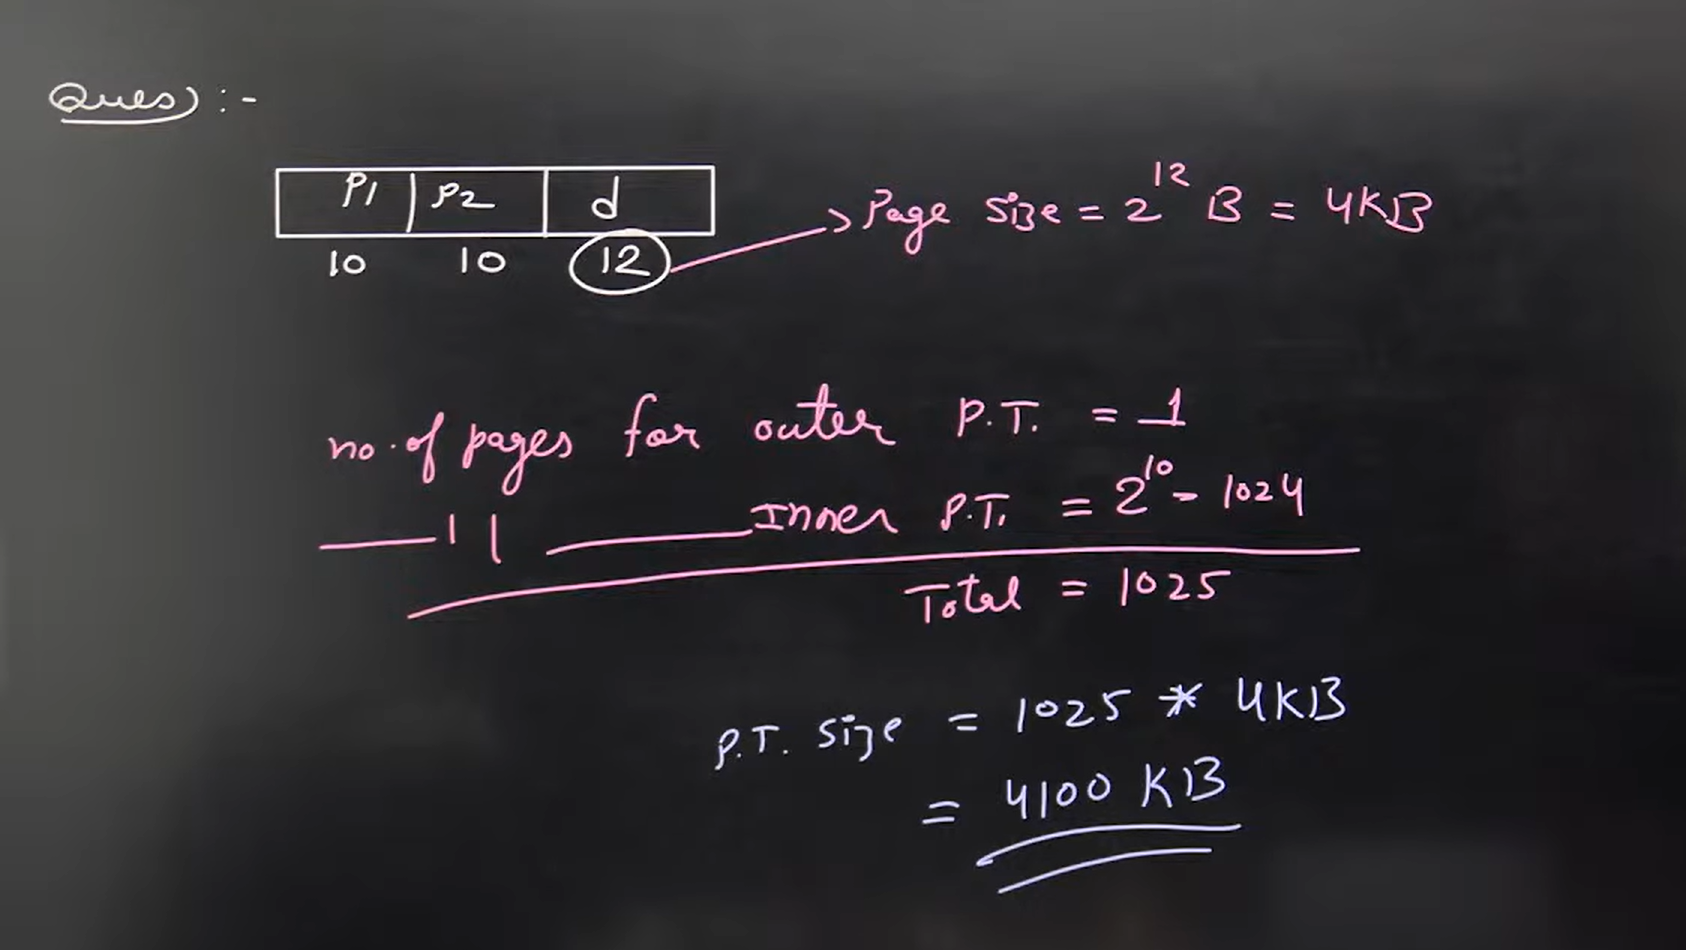 Ques) :-
P1 | P2 | d
10 10 12
Page Size = 2^12 B = 4KB
no. of pages for outer P.T. = 1
—— 11 —— Inner P.T. = 2^10 - 1024
Total = 1025
P.T. Size = 1025 * 4KB
= 4100 KB